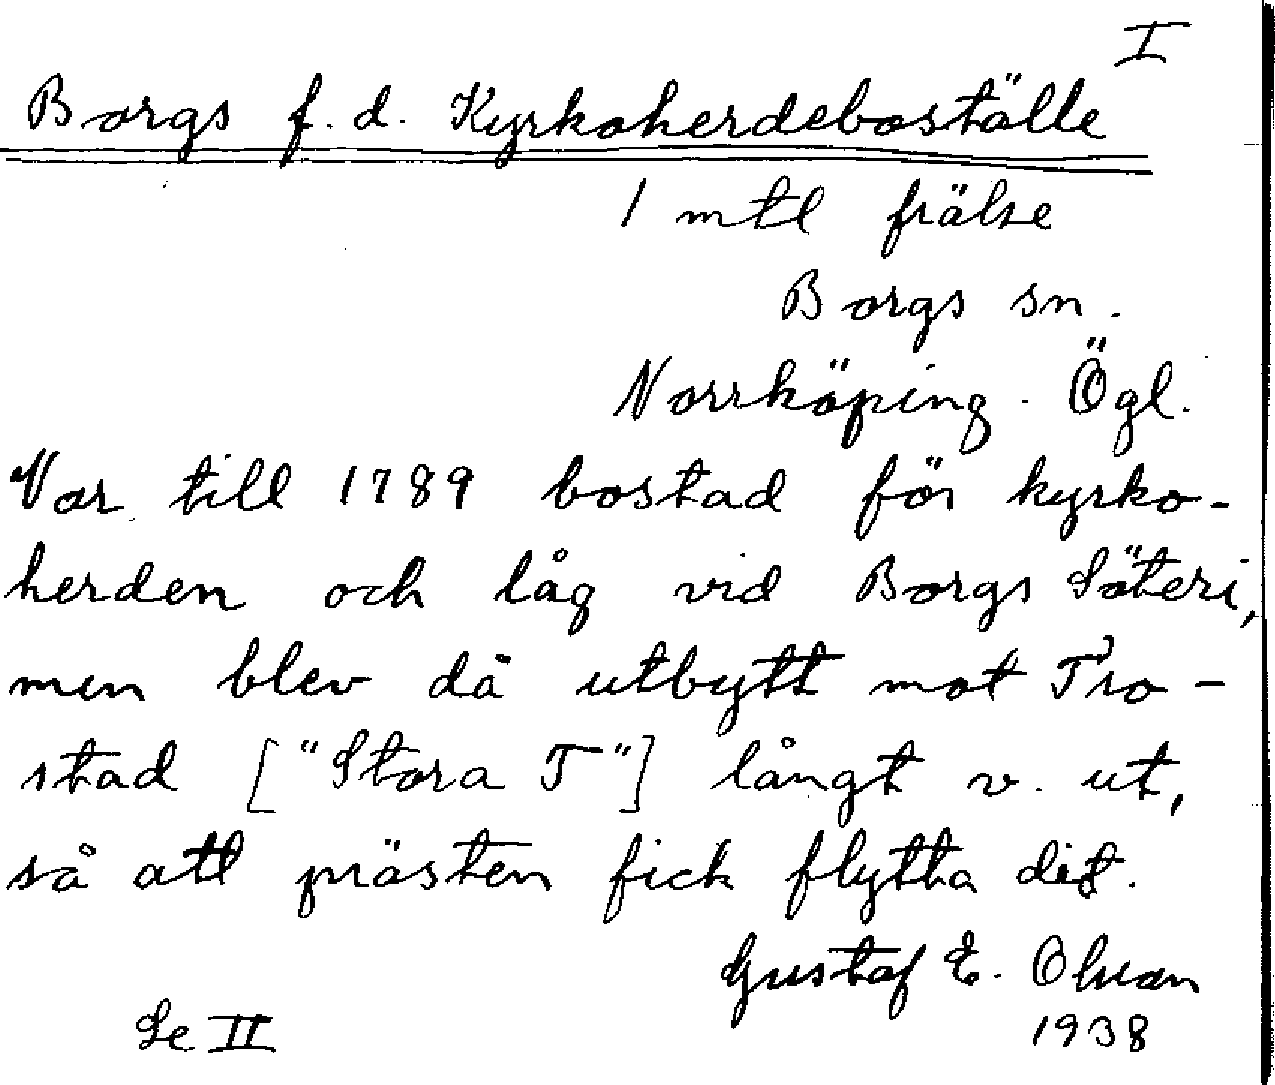 I
Borgs f. d. Kyrkoherdeboställe
1 mtl frälse
Borgs sn.
Norrköping. Ögl.
Var till 1789 bostad för kyrko-
herden och låg vid Borgs Säteri,
men blev då utbytt mot Tro-
stad ["Stora T"] långt v. ut,
så att prästen fick flytta dit.
Gustaf E. Olsson
Se II
1938